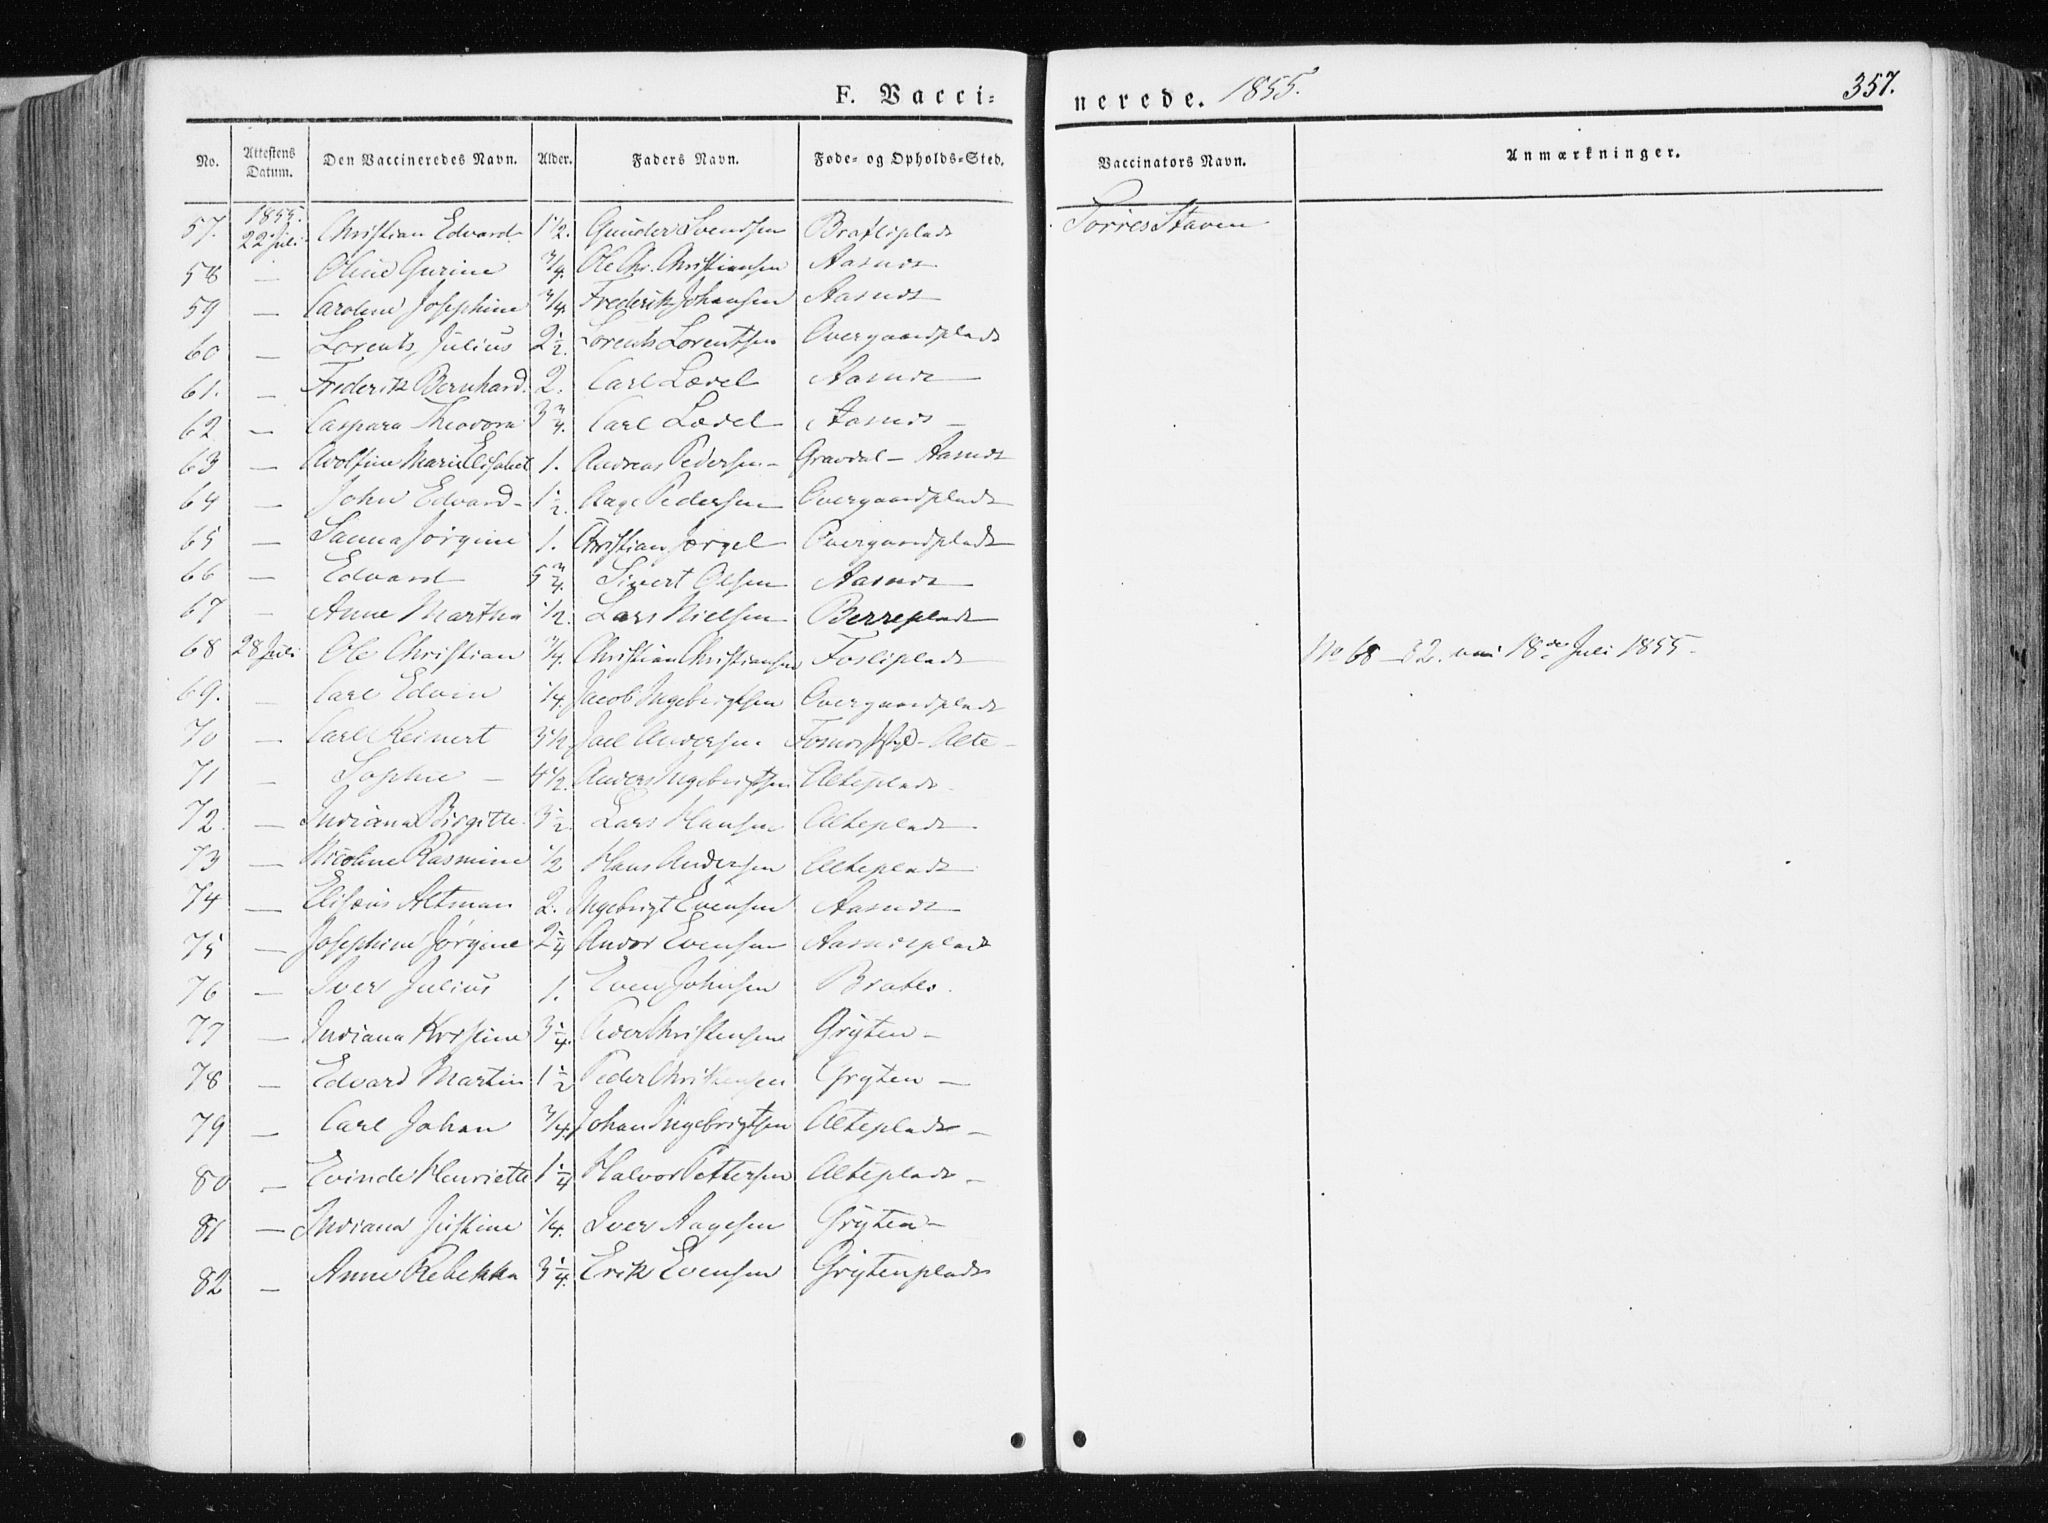 F. Vacci=
nerede. 1855.
357.
No. Attestens Datum. Den Vaccineredes Navn. Alder. Faders Navn. Føde- og Opholds-Sted. Vaccinators Navn. Anmærkninger.
57. 1855. 22 Juli Christian Edvard 1½. Gunder Svendsen Bratliplads Torres Staven
58 — Oline Gurine ¾. Ole Chr. Christiansen Aasnes
59 — Caroline Josephine ¾. Frederik Johansen Aasnes
60 — Lorents Julius 2½. Lorents Lorentsen Overgaardplads
61. — Frederik Bernhard. 2. Carl Lædel Aasnes
62 — Caspara Theodora 3¾. Carl Lædel Aasnes
63 — Adolfine Marie Elisabet 1. Andreas Pedersen Gravdal — Aasnes
64 — John Edvard 1½. Aage Pedersen Overgaardplads
65 — Sanna Jørgine 1. Christian Jærgel Overgaardplads
66 — Edvard 5¾. Sivert Olsen Aasnes
67 — Anne Martha ½. Lars Nielsen Berreplads
68 28 Juli Ole Christian ¾. Christian Christiansen Fosliplads No 68—82. 18de Juli 1855.
69. — Carl Edvin ¼. Jacob Ingebrigtsen Overgaardplads
70 — Carl Reinert 3½ Joel Andersen Alte
71 — Sophie — 4½. Anders Ingebrigtsen Alteplads
72. — Indiana Birgitte. 3½ Lars Hansen Alteplads
73 — Nicoline Rasmine ½ Hans Andersen Alteplads
74 — Elisæus Altman 2. Ingebrigt Evensen Aasnes
75 — Josephine Jørgine 2¼ Andor Evensen Aasnesplads
76 — Iver Julius 1. Even Johnsen Bratli.
77 — Indiana Kristine 3¼. Peder Christensen Gryten —
78 — Edvard Martin 1½ Peder Christensen Gryten —
79 — Carl Johan ¾. Johan Ingebrigtsen Alteplads —
80 — Evinde Henriette 1¼ Halvor Pettersen Alteplads —
81 — Indiana Justine ¼. Iver Aagesen Gryten —
82 — Anne Rebekka 3¼. Erik Evensen Grytenplads